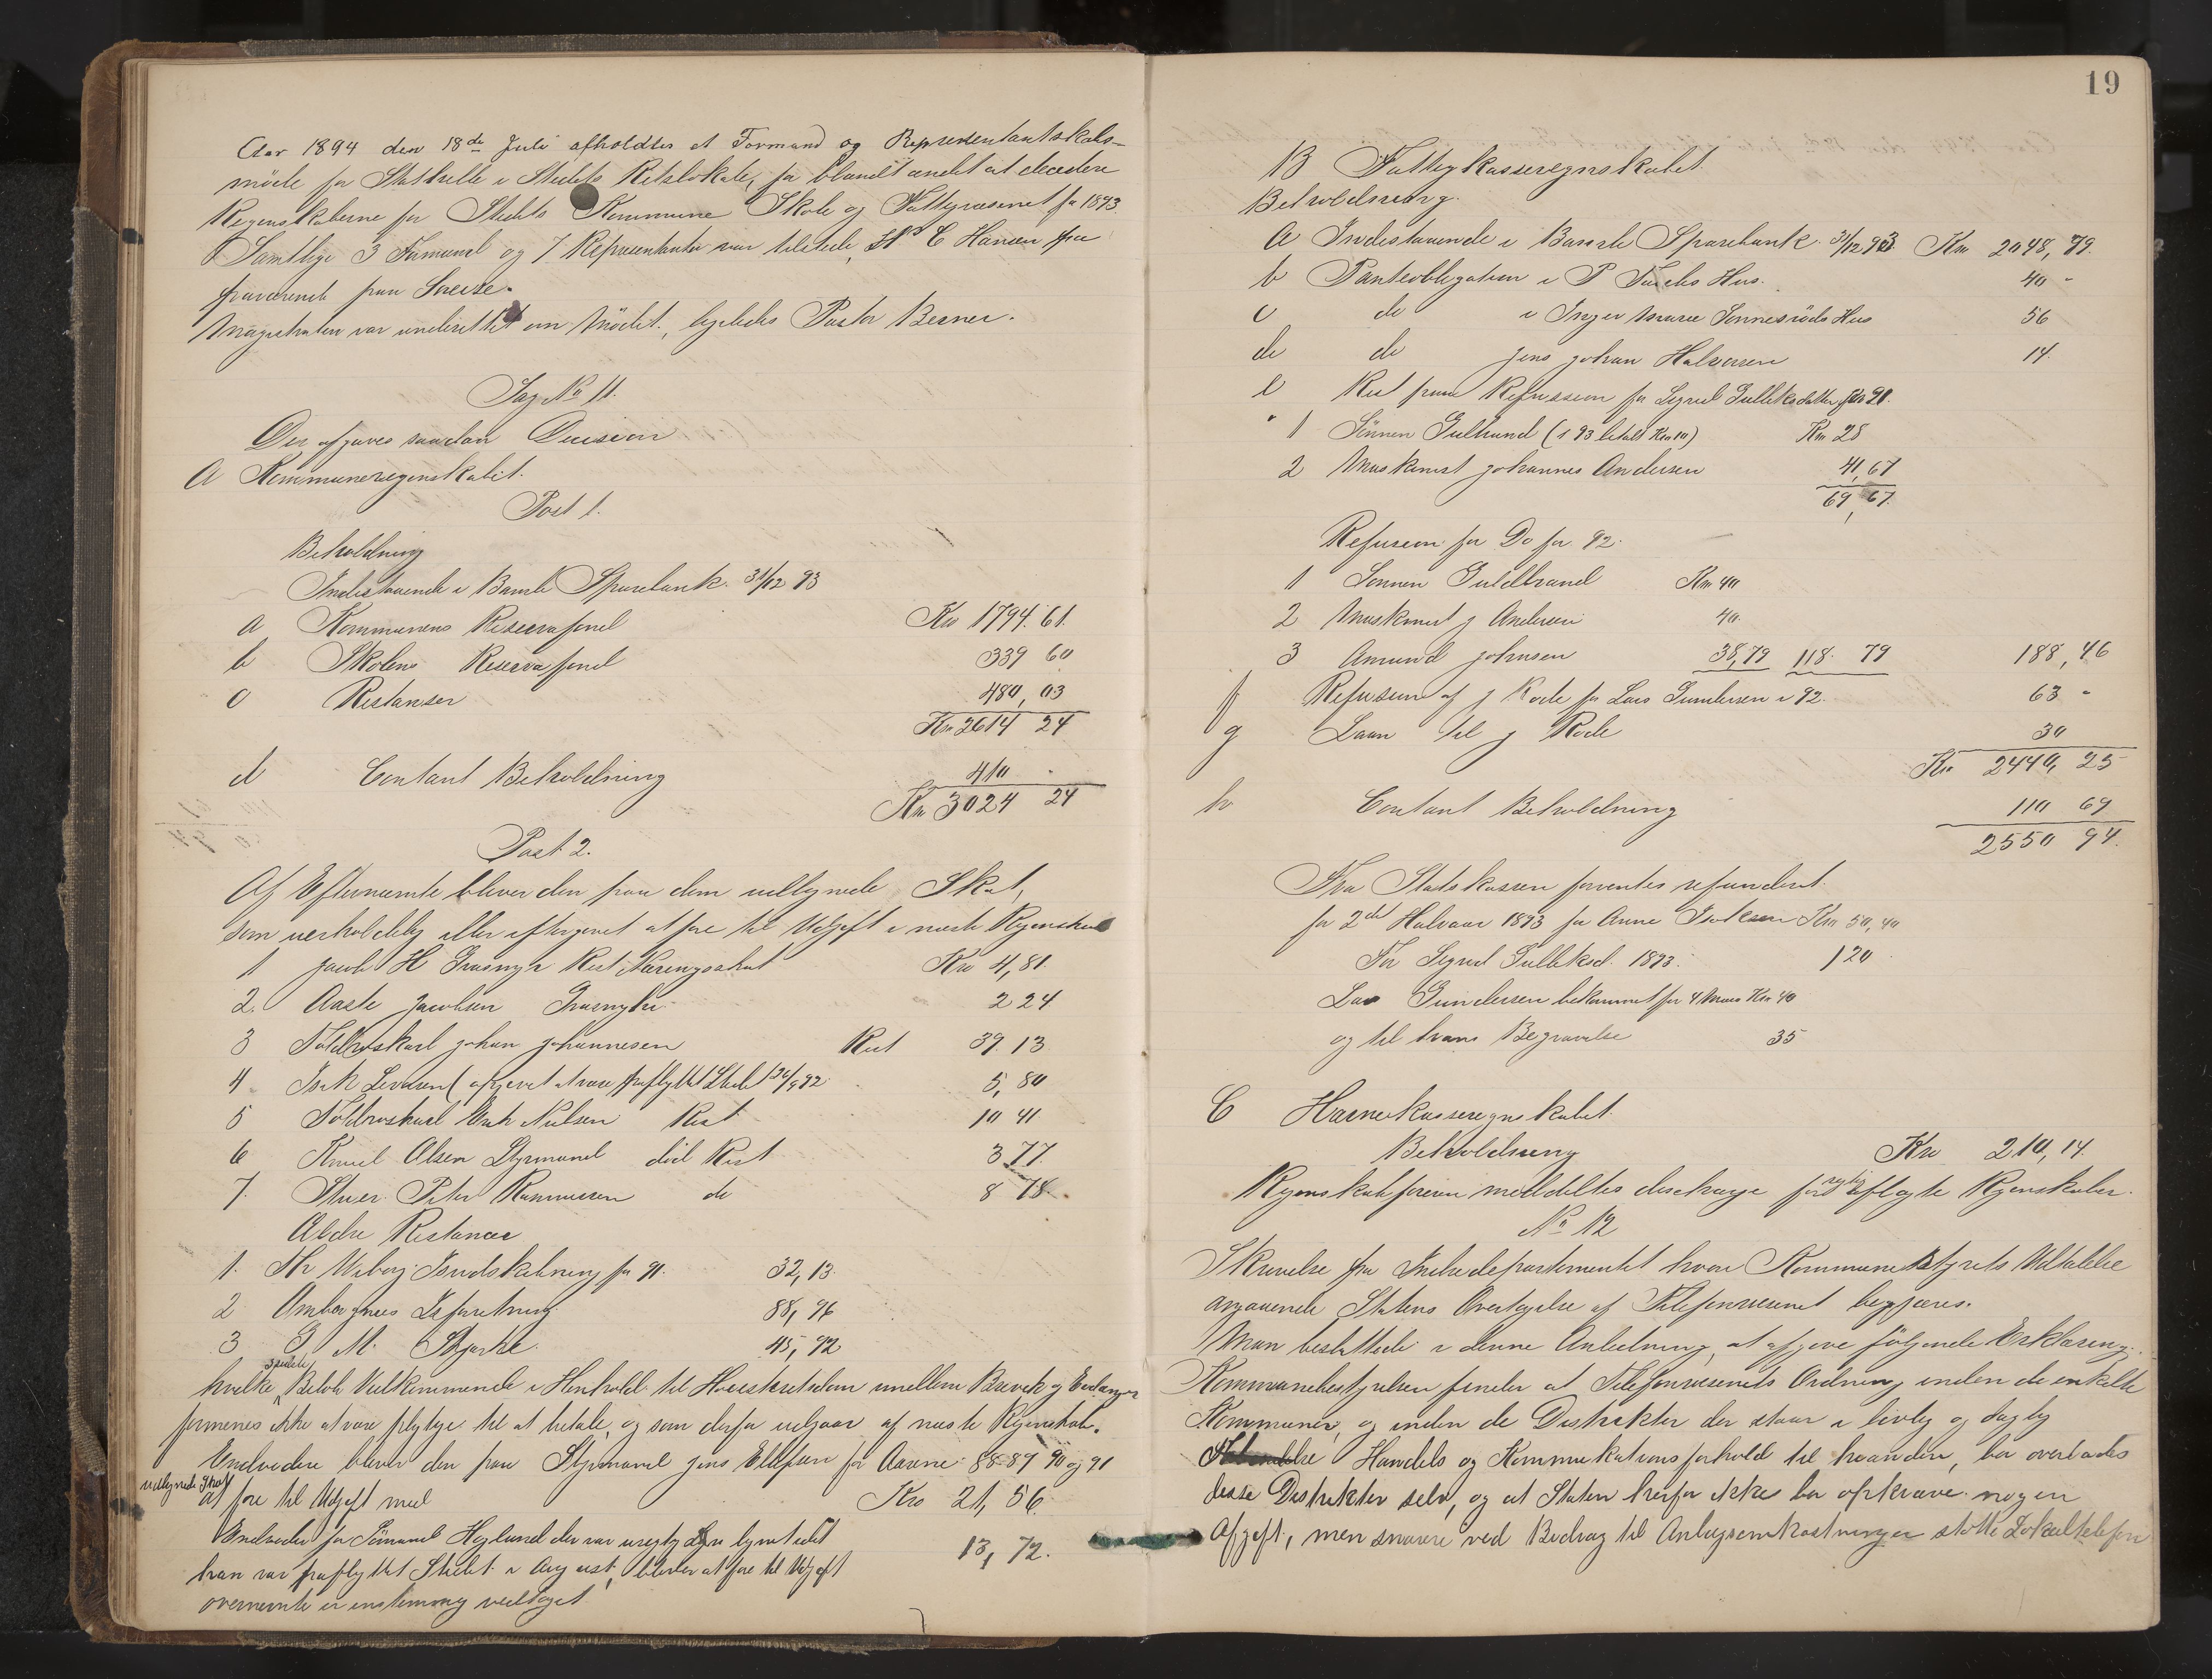 Aar 1894 den 18de Juli afholdtes et Formand og Representantskabs-
möde for Stathelle i Stedets Retslokale, for blandt andet at decidere
Regnskaberne for Stedets Kommune Skole og Fattigvæsenet for 1893.
Samtlige 3 Formænd og 7 Repræsentanter var tilstede, C Hansen
fraværende paa Sreise.
Magistraten var underrettet om Mödet, ligeledes Pastor Berner.
Sag No 11.
Der afgaves saadan Decision
A Kommuneregnskabet.
Post 1.
Beholdning
Indestaaende i Bamble Sparebank 31/12 93
a Kommunens Reservefond Kr 1794.61.
b Skolens Reservefond 339 60
c Restanser 480,03
Kr 2614 24
d Contant Beholdning 410 -
Kr 3024 24
Post 2.
Af Efternævnte bliver den paa dem udlignede Skat,
som uerholdelig eller eftergivet at føre til Udgift i næste Regnskab
1 Jacob H Rest Næringsskat Kr 4,81.
2. Aaste Jacobsen 2 24
3 Toldroskarl Johan Johannesen Rest 39 13
4 Isak (opgivet at være fraflyttet Stedet 5,80
5 Toldroskarl Nilsen Rest 10 41
6 Knud Olsen Styrmand död Rest 3 77.
7. Peter Rasmussen do 8 78.
Ældre Restancer
1. Th Wiborg for 91. 32,13.
2 Isforetning 88,96
3 G M. 45,92
hvilke 3 sidste Beløb Vedkommende i Henhold til Høiesteretsdom mellem Brevik og Eidanger
formenes ikke at være pligtige til at betale, og som derfor udgaar af næste Regnskab.
Endvidere bliver den paa Styrmand Jens Ellefsen for Aarene 88-89 90 og 91
udlignede Skat
at føre til Udgift med Kr 21,56.
Endvidere for Sömand Høglund der var urigtig lignet idet
han var fraflyttet Stedet i August, bliver at føre til Udgift 13,72.
ovennævnte er enstemmig vedtaget
19
B Fattigkasseregnskabet.
Beholdning.
a Indestaaende i Bamble Sparebank 31/12 93 Kr 2048,79.
b Panteobligation i P Hus. 40 -
c do i Inger Marie Hus 56
d do Jens Johan Halvorsen 14.
e Rest paa Refusion for Sigrid Gulliksdatter for 91.
" 1 Sönnen Gulbrand (i 93 betalt Kr 10) Kr 28
2 Maskinist Johannes Andersen 41,67
69,67.
Refusion for Do for 92.
1 Sønnen Guldbrand Kr 40
2 Maskinist J Andersen 40.
3 Amund Johnsen 38,79 118. 79 188,46
f Refusion af J for Lars Gundersen i 92. 63 -
g Laan til J 30
Kr 2440,25
h Contant Beholdning 110 69
2550 94.
Fra Statskassen forventes refunderet.
for 2det Halvaar 1893 for Anne Isaksen Kr 50,40
For Sigrid Gulliksd. 1893. 120
Lars Gundersen bekommet for 4 Maar Kr 40
og til hans Begravelse 35
C Havnekasseregnskabet.
Beholdning Kr 210,14.
Regnskabsføreren meddeltes decharge for rigtig aflagte Regnskaber.
No 12
Skrivelse fra Indredepartementet hvori Kommunestyrets Udtalelse
angaaende Statens Overtagelse af Telefonvæsenet begjæres.
Man besluttede i denne Anledning, at afgive følgende Erklæring.
Kommunebestyrelsen finder at Telefonvæsenets Ordning inden de enkelte
Kommuner, og inden de Distrikter der staar i livlig og daglig
Handels og Kommunikationsforhold til hinanden, bør overlades
disse Distrikter selv, og at Staten herfor ikke bør opkræve nogen
Afgift, men snarere ved Bidrag til Anlægsomkostninger støtte Lokaltelefon